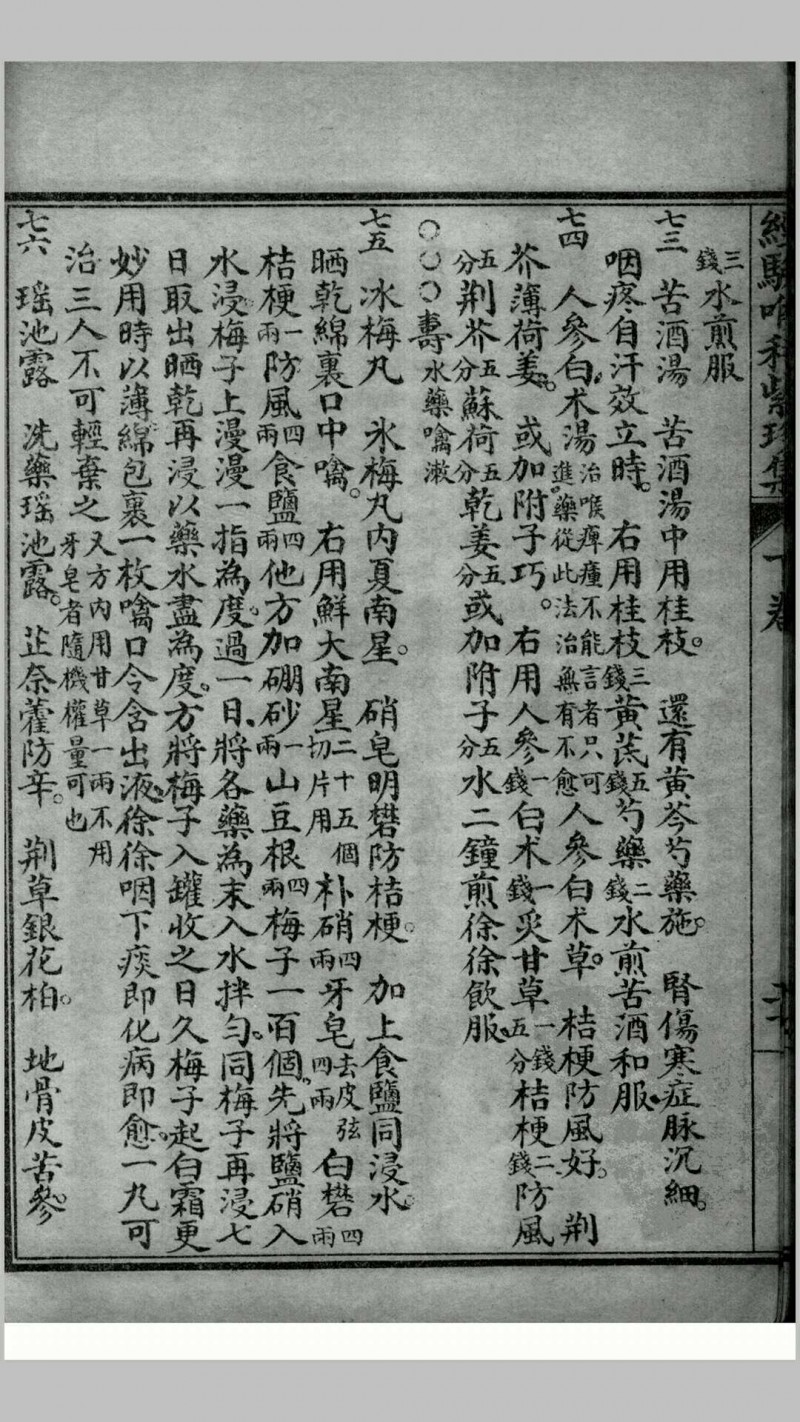 經驗喉科紫珍集 下卷
三錢水煎服
七三 苦酒湯 苦酒湯中用桂枝。 還有黃芩芍藥施。 腎傷寒症脉沉細。
咽疼自汗效立時。 右用桂枝三錢黃芪五錢芍藥二錢水煎苦酒和服。
七四 人參白术湯治喉痺瘇不能言者只可進藥從此法治無有不愈人參白术草。 桔梗防風好。 荆
芥薄荷姜。 或加附子巧。 右用人參一錢白术一錢炙甘草一錢五分桔梗二錢防風
五分荆芥五分蘇荷五分乾姜五分或加附子五分水二鐘煎徐徐飲服。
〇〇〇壽水藥噙漱
七五 冰梅丸 氷梅丸內夏南星。 硝皂明礬防桔梗。 加上食鹽同浸水。
晒乾綿裏口中噙。 右用鮮大南星二十五個切片用朴硝四兩牙皂去皮弦四兩白礬四兩
桔梗一兩防風四兩食鹽四兩他方加硼砂一兩山豆根四兩梅子一百個。先將鹽硝入
水浸梅子上漫漫一指為度。過一日、將各藥為末入水拌勻。同梅子再浸七
日取出晒乾再浸以藥水盡為度。方將梅子入罐收之日久梅子起白霜更
妙用時以薄綿包裹一枚噙口令含出液徐徐咽下痰即化病即愈。一丸可
治三人不可輕棄之又方內用甘草一兩不用牙皂者隨機權量可也
七六 瑶池露 洗藥瑶池露。 芷奈藿防辛。 荆草銀花柏。 地骨皮苦參。